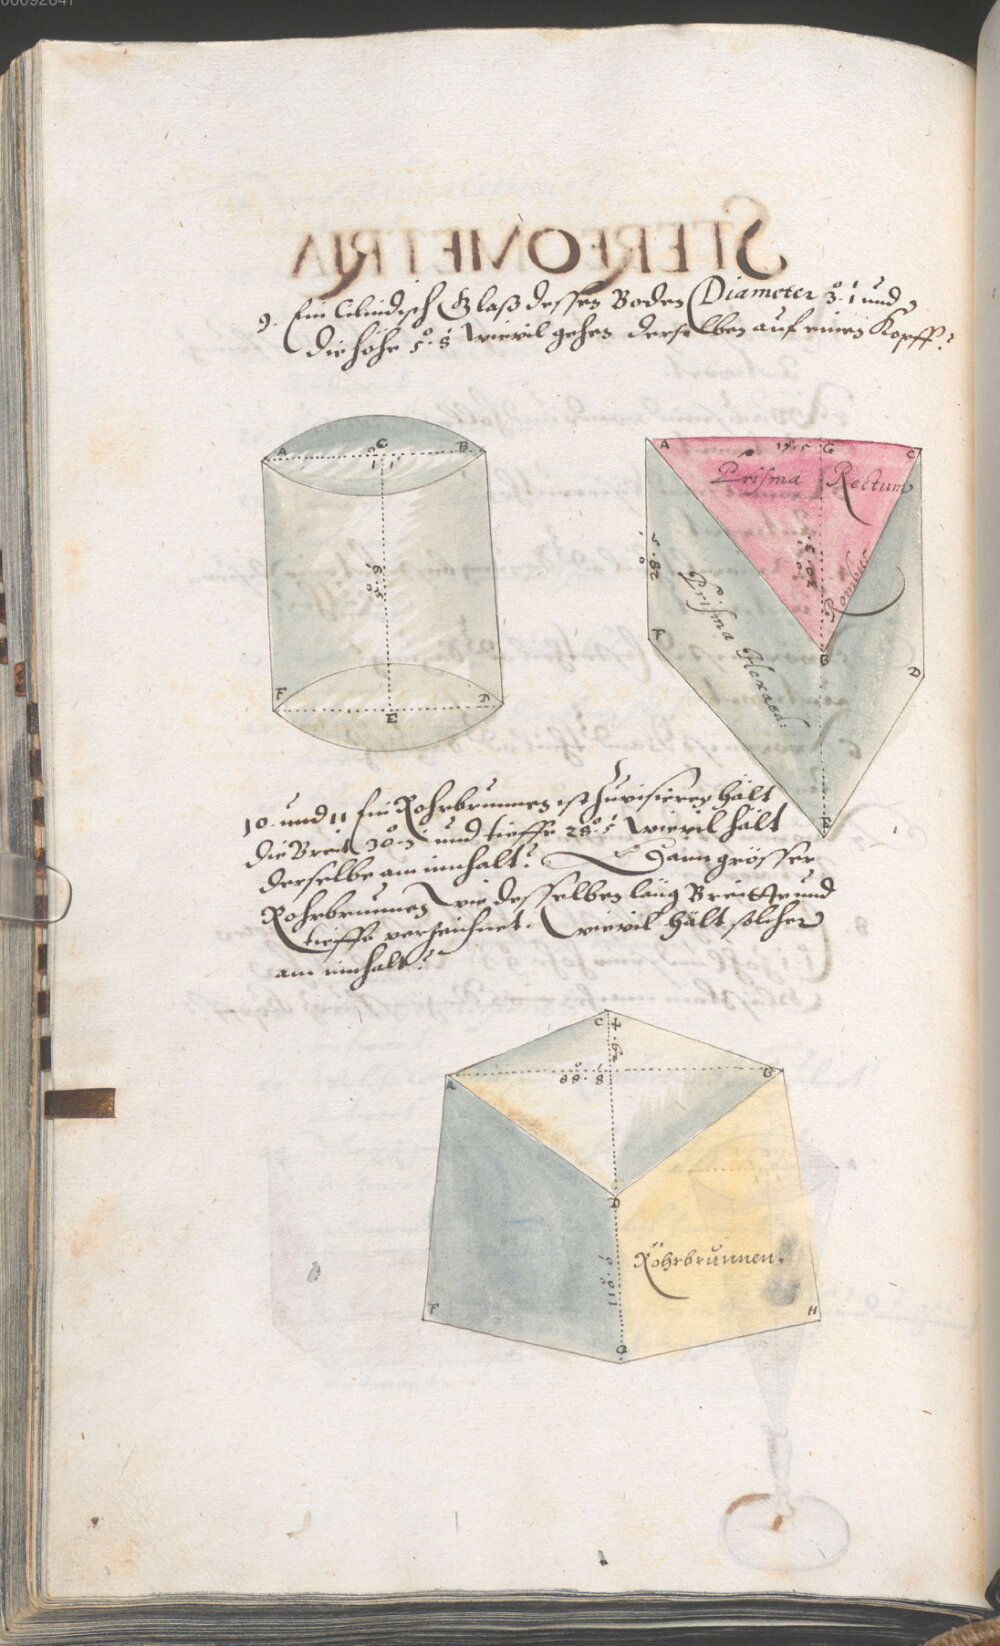 00092841
STEREOMETRIA
9. Ein Cilindisch Glaß dessen Boden Diameter 3. 1 und
die höhe 5. 8 wievil gehen derselben auf einen Kopff?
A C B
F E
A 14.5 G C
Prisma Rectum
Prisma Hexaed:
28. 5
F
B
D
E
10. und 11 Ein Rohrbrunnen ist zu visieren hält
die Breit 30. 3 und tieffe 28. 5 wievil hält
derselbe am innhalt? Dann grösser
Rohrbrunnen wie desselben läng Breitte und
tieffe verzeichnet. wievil hält solcher
am innhalt?
C
A 88. 8 B
D
Röhrbrunnen.
110. 0
F G H